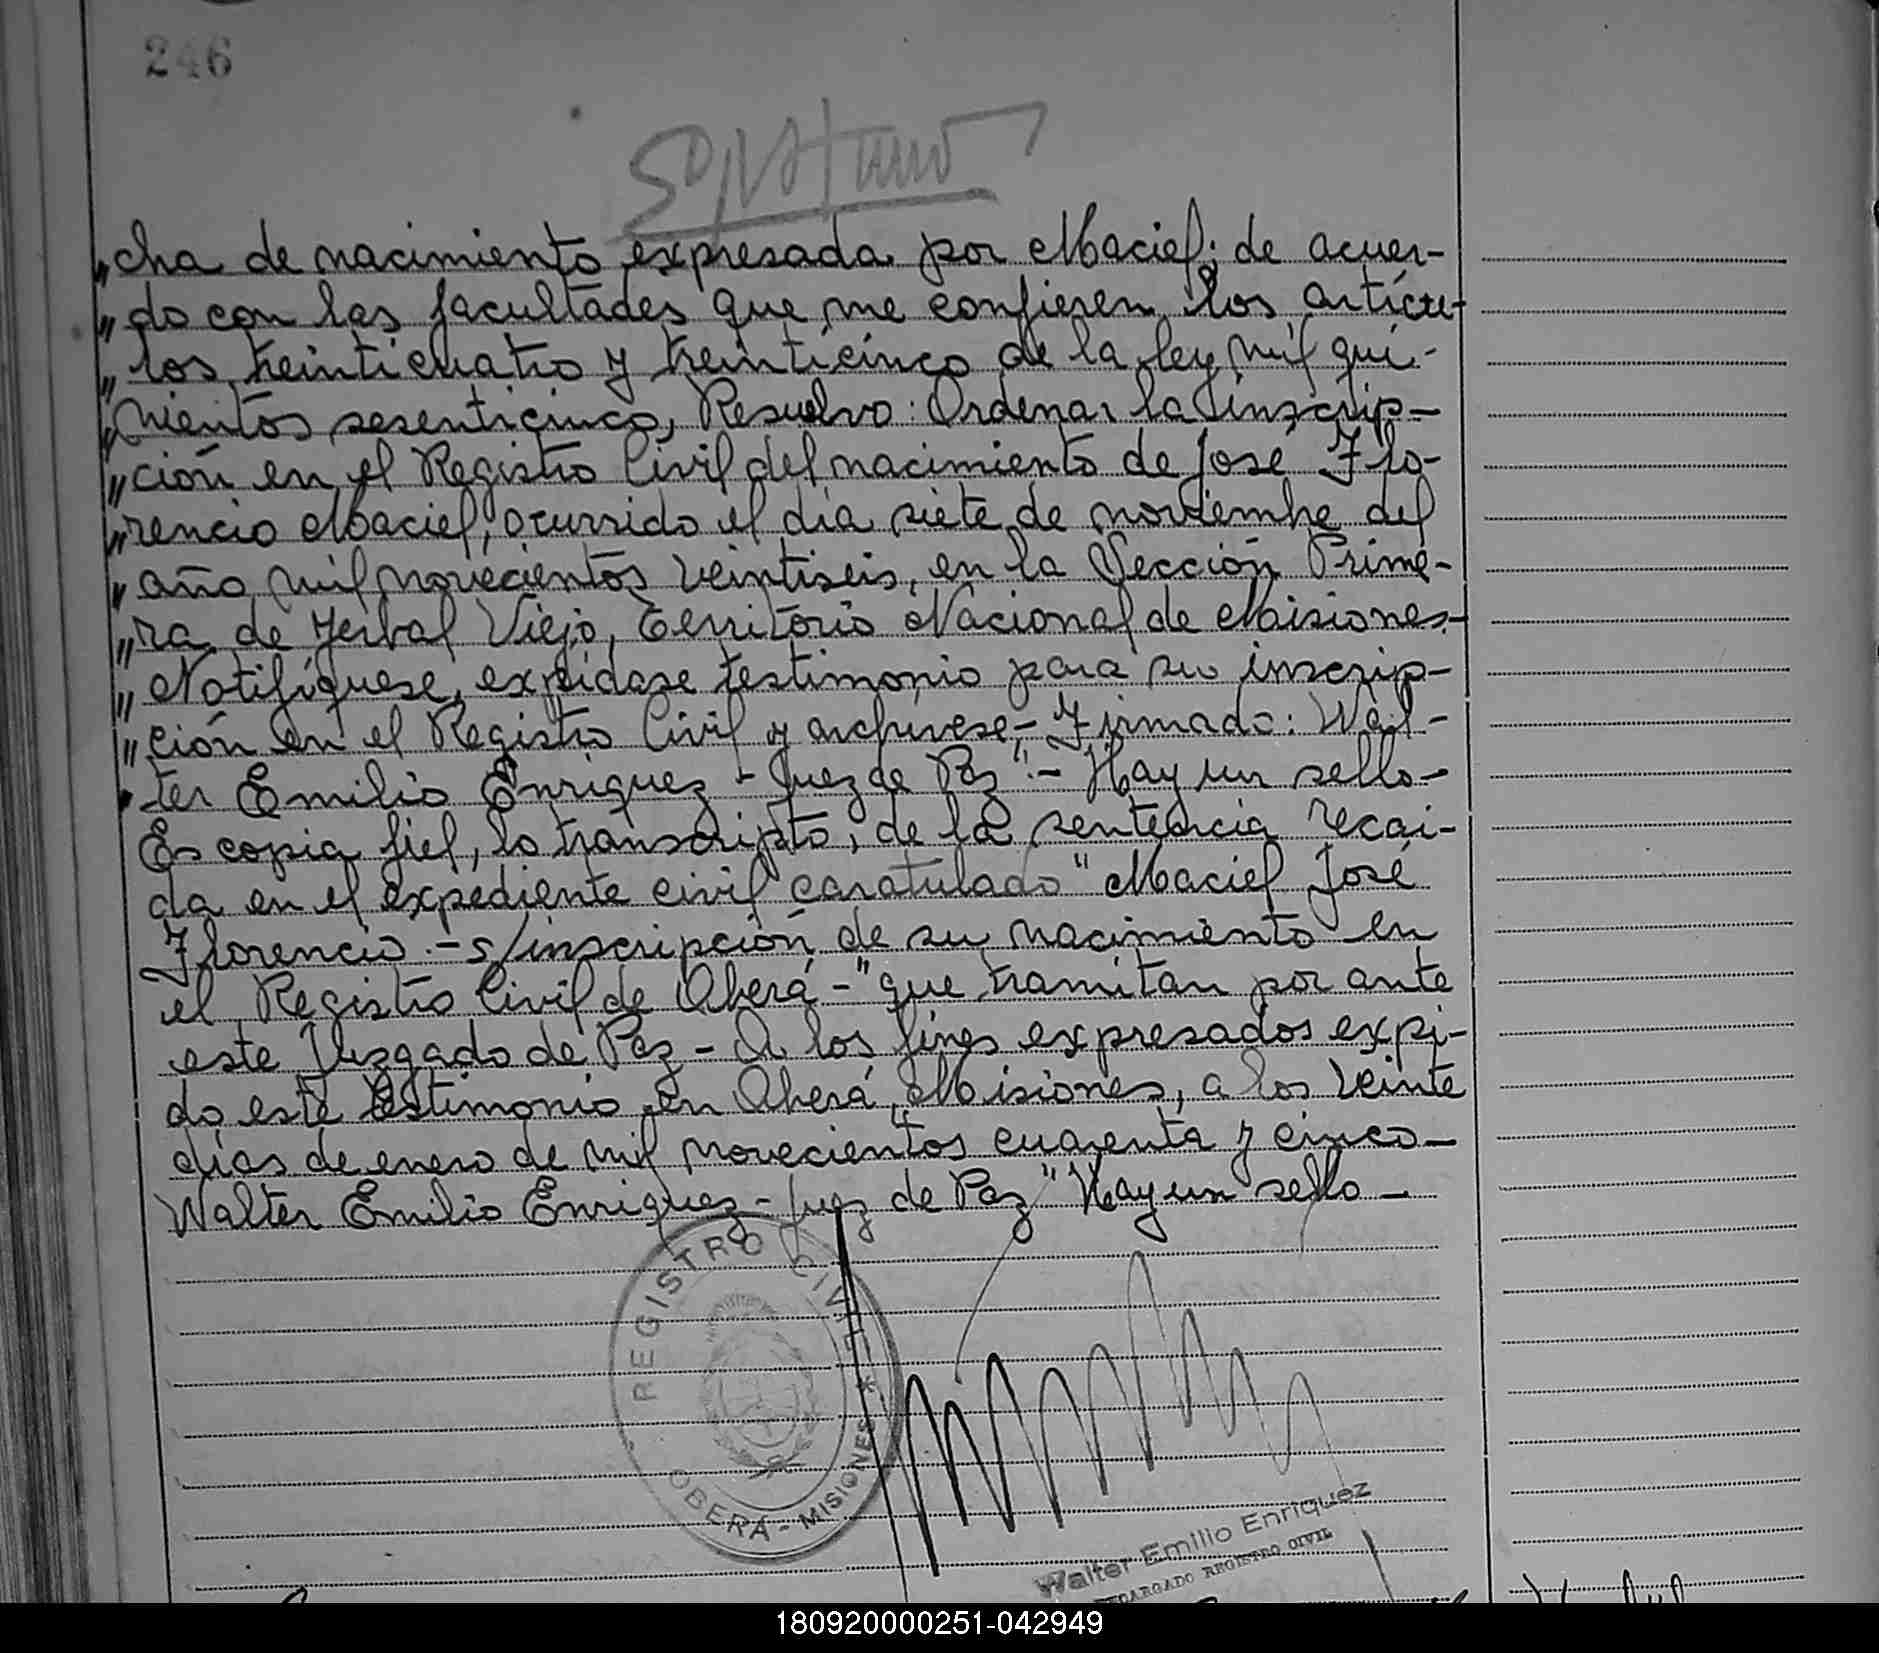 246
„cha de nacimiento expresada por Maciel; de acuer-
„do con las facultades que me confieren los articu-
„los treinticuatro y treinticinco de la ley mil qui-
„nientos sesenticinco, Resuelvo: Ordenar la inscrip-
„ción en el Registro Civil del nacimiento de José Flo-
„rencio Maciel, ocurrido el día siete de noviembre del
„año mil novecientos veintiseis, en la Sección Prime-
„ra de Yerbal Viejo, Territorio Nacional de Misiones.-
„Notifíquese, expídase testimonio para su inscrip-
„ción en el Registro Civil y archívese.- Firmado: Wal-
„ter Emilio Enriquez - Juez de Paz".- Hay un sello-
Es copia fiel, lo transcripto, de la sentencia recai-
da en el expediente civil caratulado "Maciel José
Florencio.- s/inscripción de su nacimiento en
el Registro Civil de Oberá-" que tramitan por ante
este Juzgado de Paz - A los fines expresados expi-
do este testimonio en Oberá, Misiones, a los veinte
días de enero de mil novecientos cuarenta y cinco-
Walter Emilio Enriquez - Juez de Paz" Hay un sello-
REGISTRO CIVIL *
OBERÁ - MISIONES
Walter Emilio Enriquez
ENCARGADO REGISTRO CIVIL
180920000251-042949